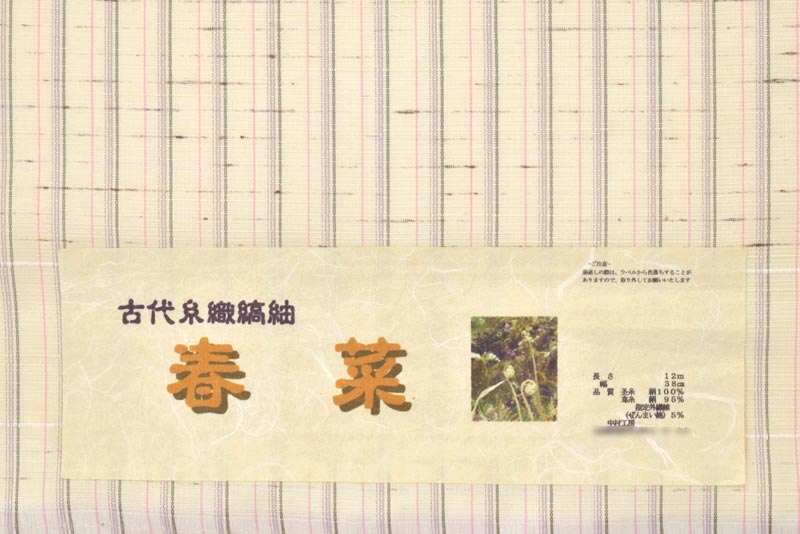 古代糸織縞紬
春菜
~ご注意~
湯通しの際は、ラベルから色落ちすることが
ありますので、取り外してお願いいたします
長さ 12m
幅 38cm
品質 全糸 絹100%
緯糸 絹 95%
指定外繊維
(ぜんまい綿) 5%
中村工房